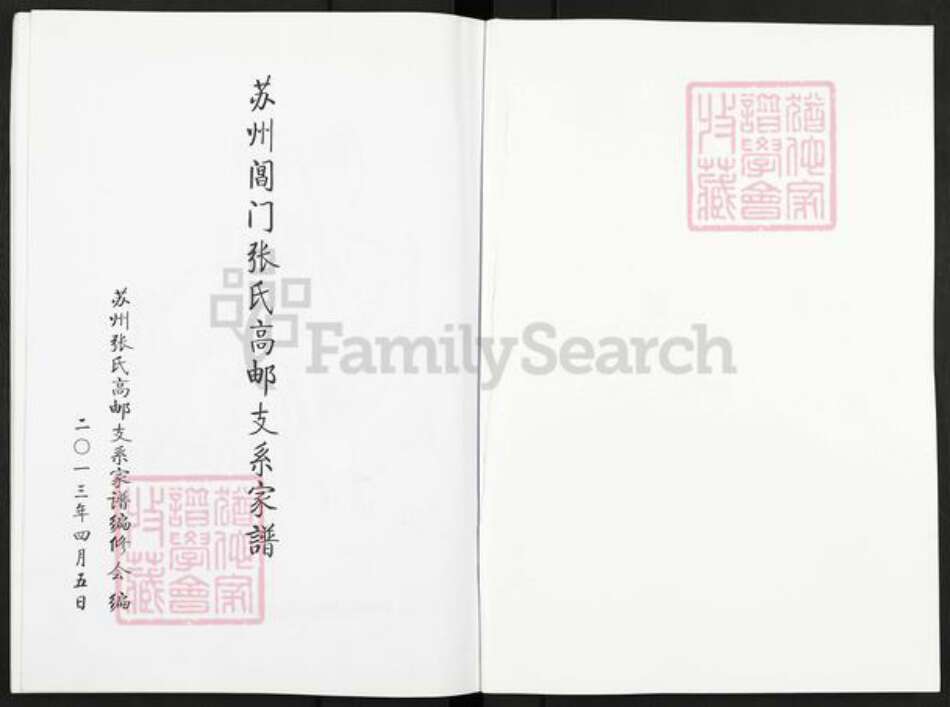 苏州阊门张氏高邮支系家譜
苏州张氏高邮支系家谱编修会编
二〇一三年四月五日
FamilySearch
譜學會
收藏
譜學會
收藏